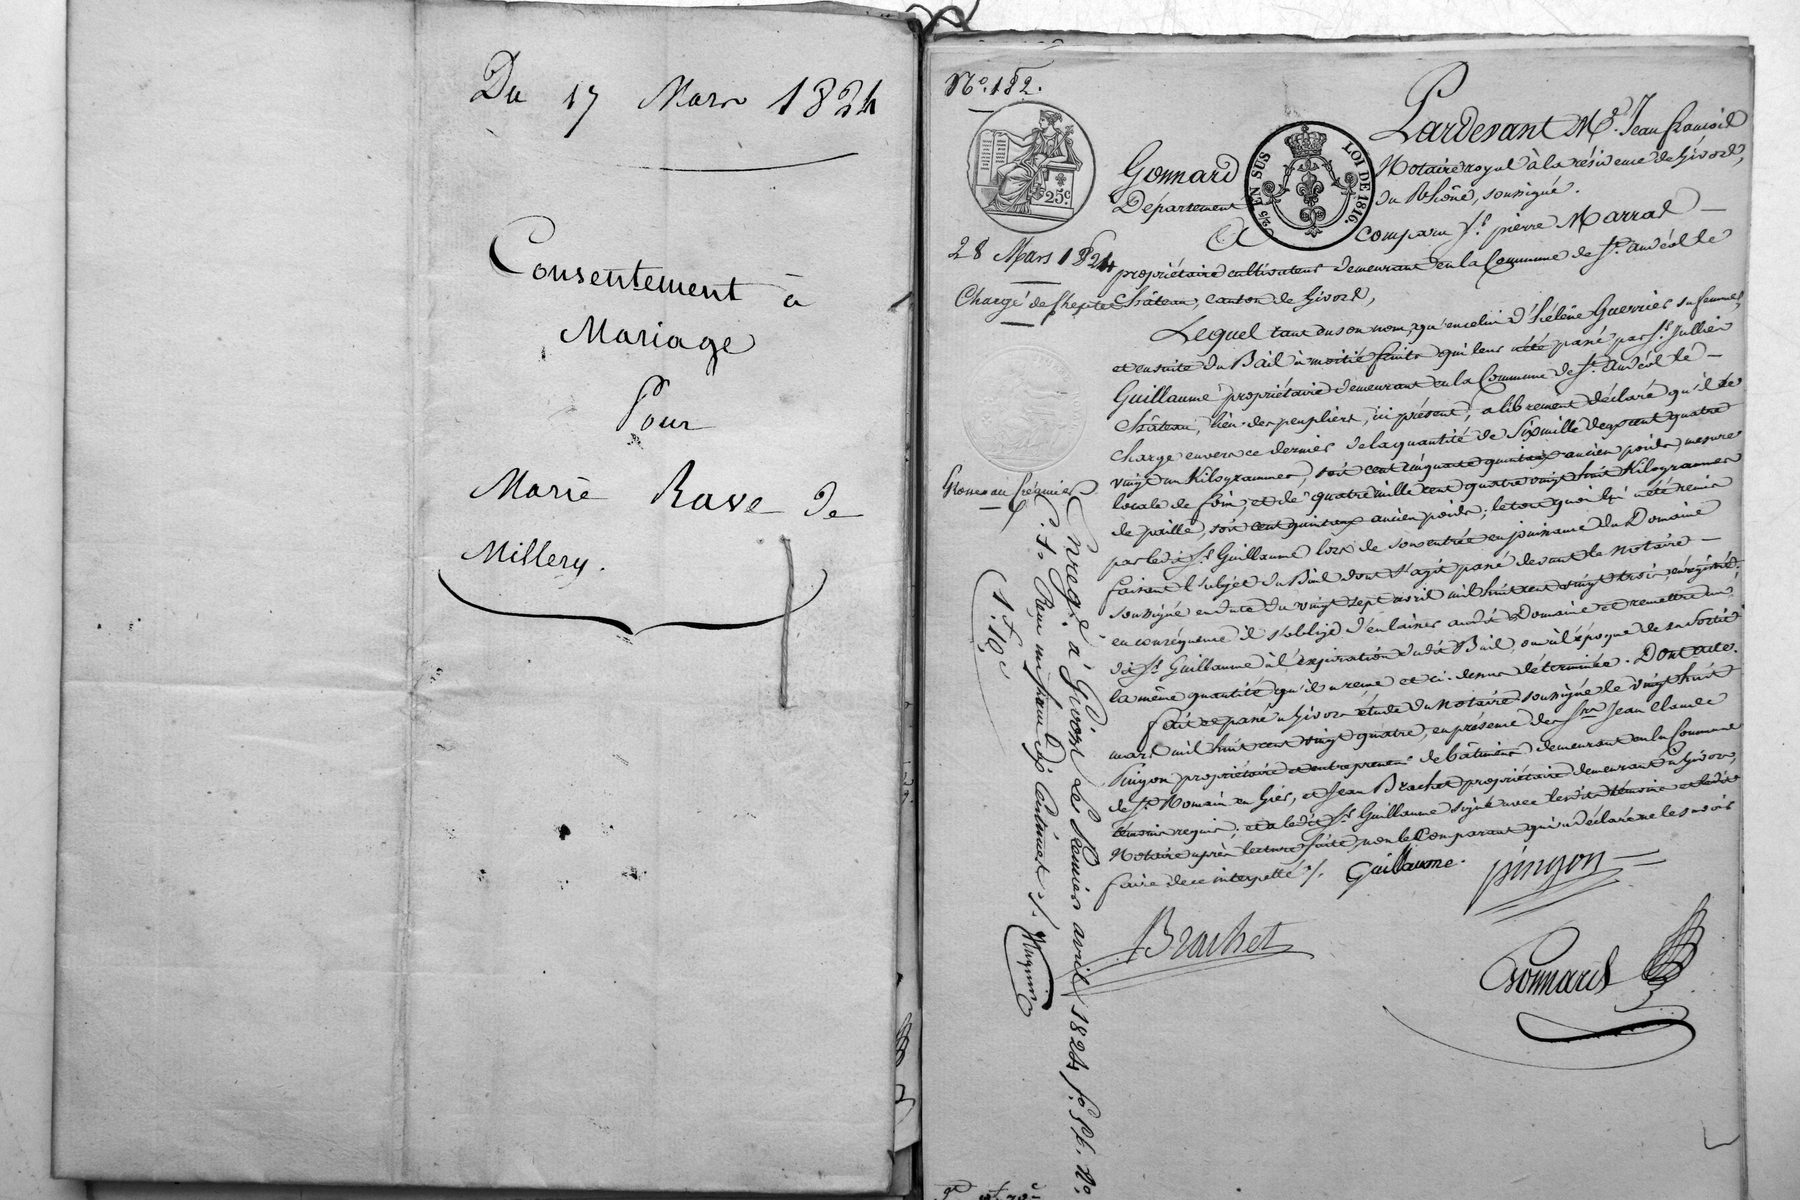 Du 17 Mars 1824
Consentement à
Mariage
Pour
Marie Rave de
Millery.
N.º 182.
Pardevant Mᵉ. Jean françois
Gonnard
Notaire royal à la résidence de Givors,
Département
du Rhône, soussigné.
25ᶜ.
EN SUS
LOI DE 1816.
A comparu Sʳ. pierre Marral
28 Mars 1824
propriétaire cultivateur demeurant en la Commune de Sᵗ. andéol le
Chargé de Cheptel
Château, canton de Givors,
Lequel tant en son nom, qu'en celui d'hélène Guerrier sa femme,
et ensuite du Bail à moitié fruits qui leur a été passé par Sʳ. Jullien
Guillaume propriétaire demeurant en la Commune de Sᵗ. Andéol le
Château, lieu des peupliers, ici présent, a librement déclaré qu'il se
charge envers ce dernier de la quantité de Six mille deux cent quatre
vingt un Kilogrammes, soit cent cinquante quintaux ancien poids, mesure
locale de foin, et de quatre mille cent quatre vingt huit Kilogrammes
de paille, soit cent quintaux ancien poids; le tout quoi lui a été remis
par ledit Sʳ. Guillaume lors de son entrée en jouissance du Domaine
faisant l'objet du Bail dont s'agit passé devant le notaire
soussigné en date du vingt sept avril mil huit cent vingt trois, enregistré;
en conséquence il s'oblige d'en laisser audit Domaine et remettre au
dit Sʳ. Guillaume à l'expiration dudit Bail, ou à l'époque de sa Sortie
la même quantité qu'il a reçue et ci-dessus déterminée. Dont acte.
fait et passé à Givors étude du Notaire soussigné le vingt huit
mars mil huit cent vingt quatre, en présence des Sʳˢ Jean Claude
Pinyon propriétaire et entrepreneur de bâtiment demeurant en la Commune
de Sᵗ. Romain en Gier, et Jean Brachet propriétaire demeurant à Givors,
témoins requis; et a ledit Sʳ. Guillaume signé avec lesdits témoins et ledit
Notaire après lecture faite, non le Comparant qui a déclaré ne le savoir
faire de ce interpellé ./.
Guillaume.
pinyon
Brachet
Gonnard
Enregᵗ. à Givors Le Premier avril 1824, fº.
Reçu un franc dix centimes
1.ᶠ 10ᶜ